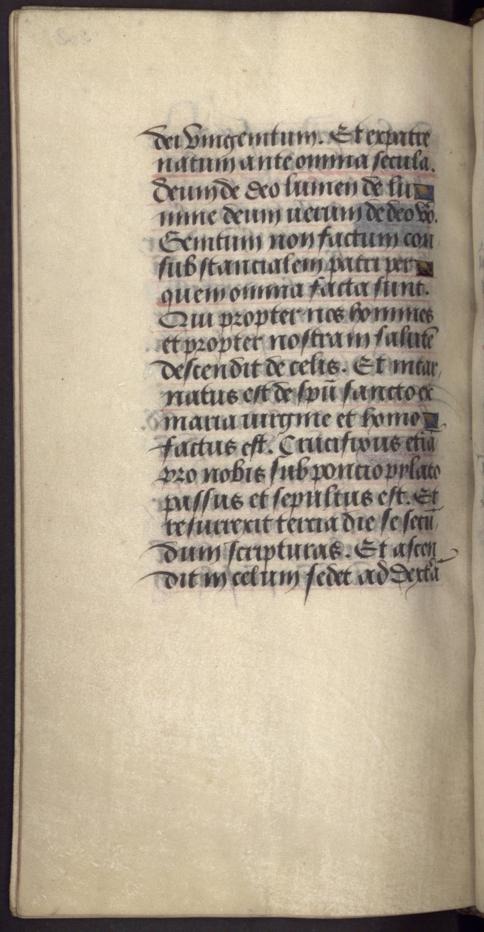 dei vnigenitum. Et expatre
natum ante omnia secula.
deum de deo lumen de lu
mine deum uerum de deo vo.
Genitum non factum con
substancialem patri per
quem omnia facta sunt.
Qui propter nos homines
et propter nostram salutē
descendit de celis. Et incar
natus est de spū sancto ex
maria uirgine et homo
factus est. Crucifixus etiā
pro nobis sub poncio pylato
passus et sepultus est. Et
resurrexit tercia die se secū
dum scripturas. Et ascen
dit in celum sedet ad dextrā